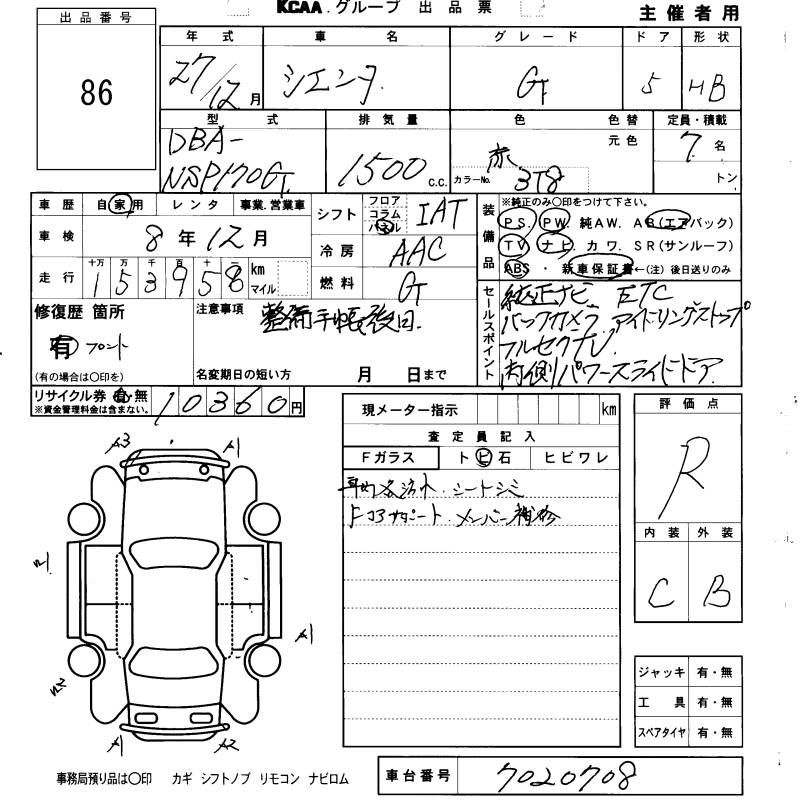 KCAA.グループ 出品票
主催者用
出品番号
86
年式 車名 グレード ドア 形状
27/12月 シエンタ G 5 HB
型式 排気量 色 色替 定員・積載
DBA-
NSP170G 1500c.c. 赤 元色 7名
カラーNo. 3T8 トン
車歴 自家用 レンタ 事業.営業車
シフト フロア コラム パネル IAT
車検 8年12月
冷房 AAC
走行 十万 万 千 百 十 一 153958 km マイル
燃料 G
装備品
※純正のみ○印をつけて下さい。
PS. PW. 純AW. AB(エアバック)
TV ナビ. カワ. SR(サンルーフ)
ABS ・ 新車保証書←(注)後日送りのみ
修復歴 箇所
有 フロント
(有の場合は○印を)
注意事項 整備手帳後日.
名変期日の短い方 月 日まで
セールスポイント
純正ナビ ETC
バックカメラ アイドリングストップ
フルセグTV
両側パワースライドドア
リサイクル券 有・無 10360円
※資金管理料金は含まない。
現メーター指示 km
査定員記入
Fガラス トビ石 ヒビワレ
シートシミ
Fコアサポート メンバー補修
評価点
R
内装 外装
C B
ジャッキ 有・無
工具 有・無
スペアタイヤ 有・無
A3 A1
A1
A1 A2
事務局預り品は○印 カギ シフトノブ リモコン ナビロム
車台番号 7020708